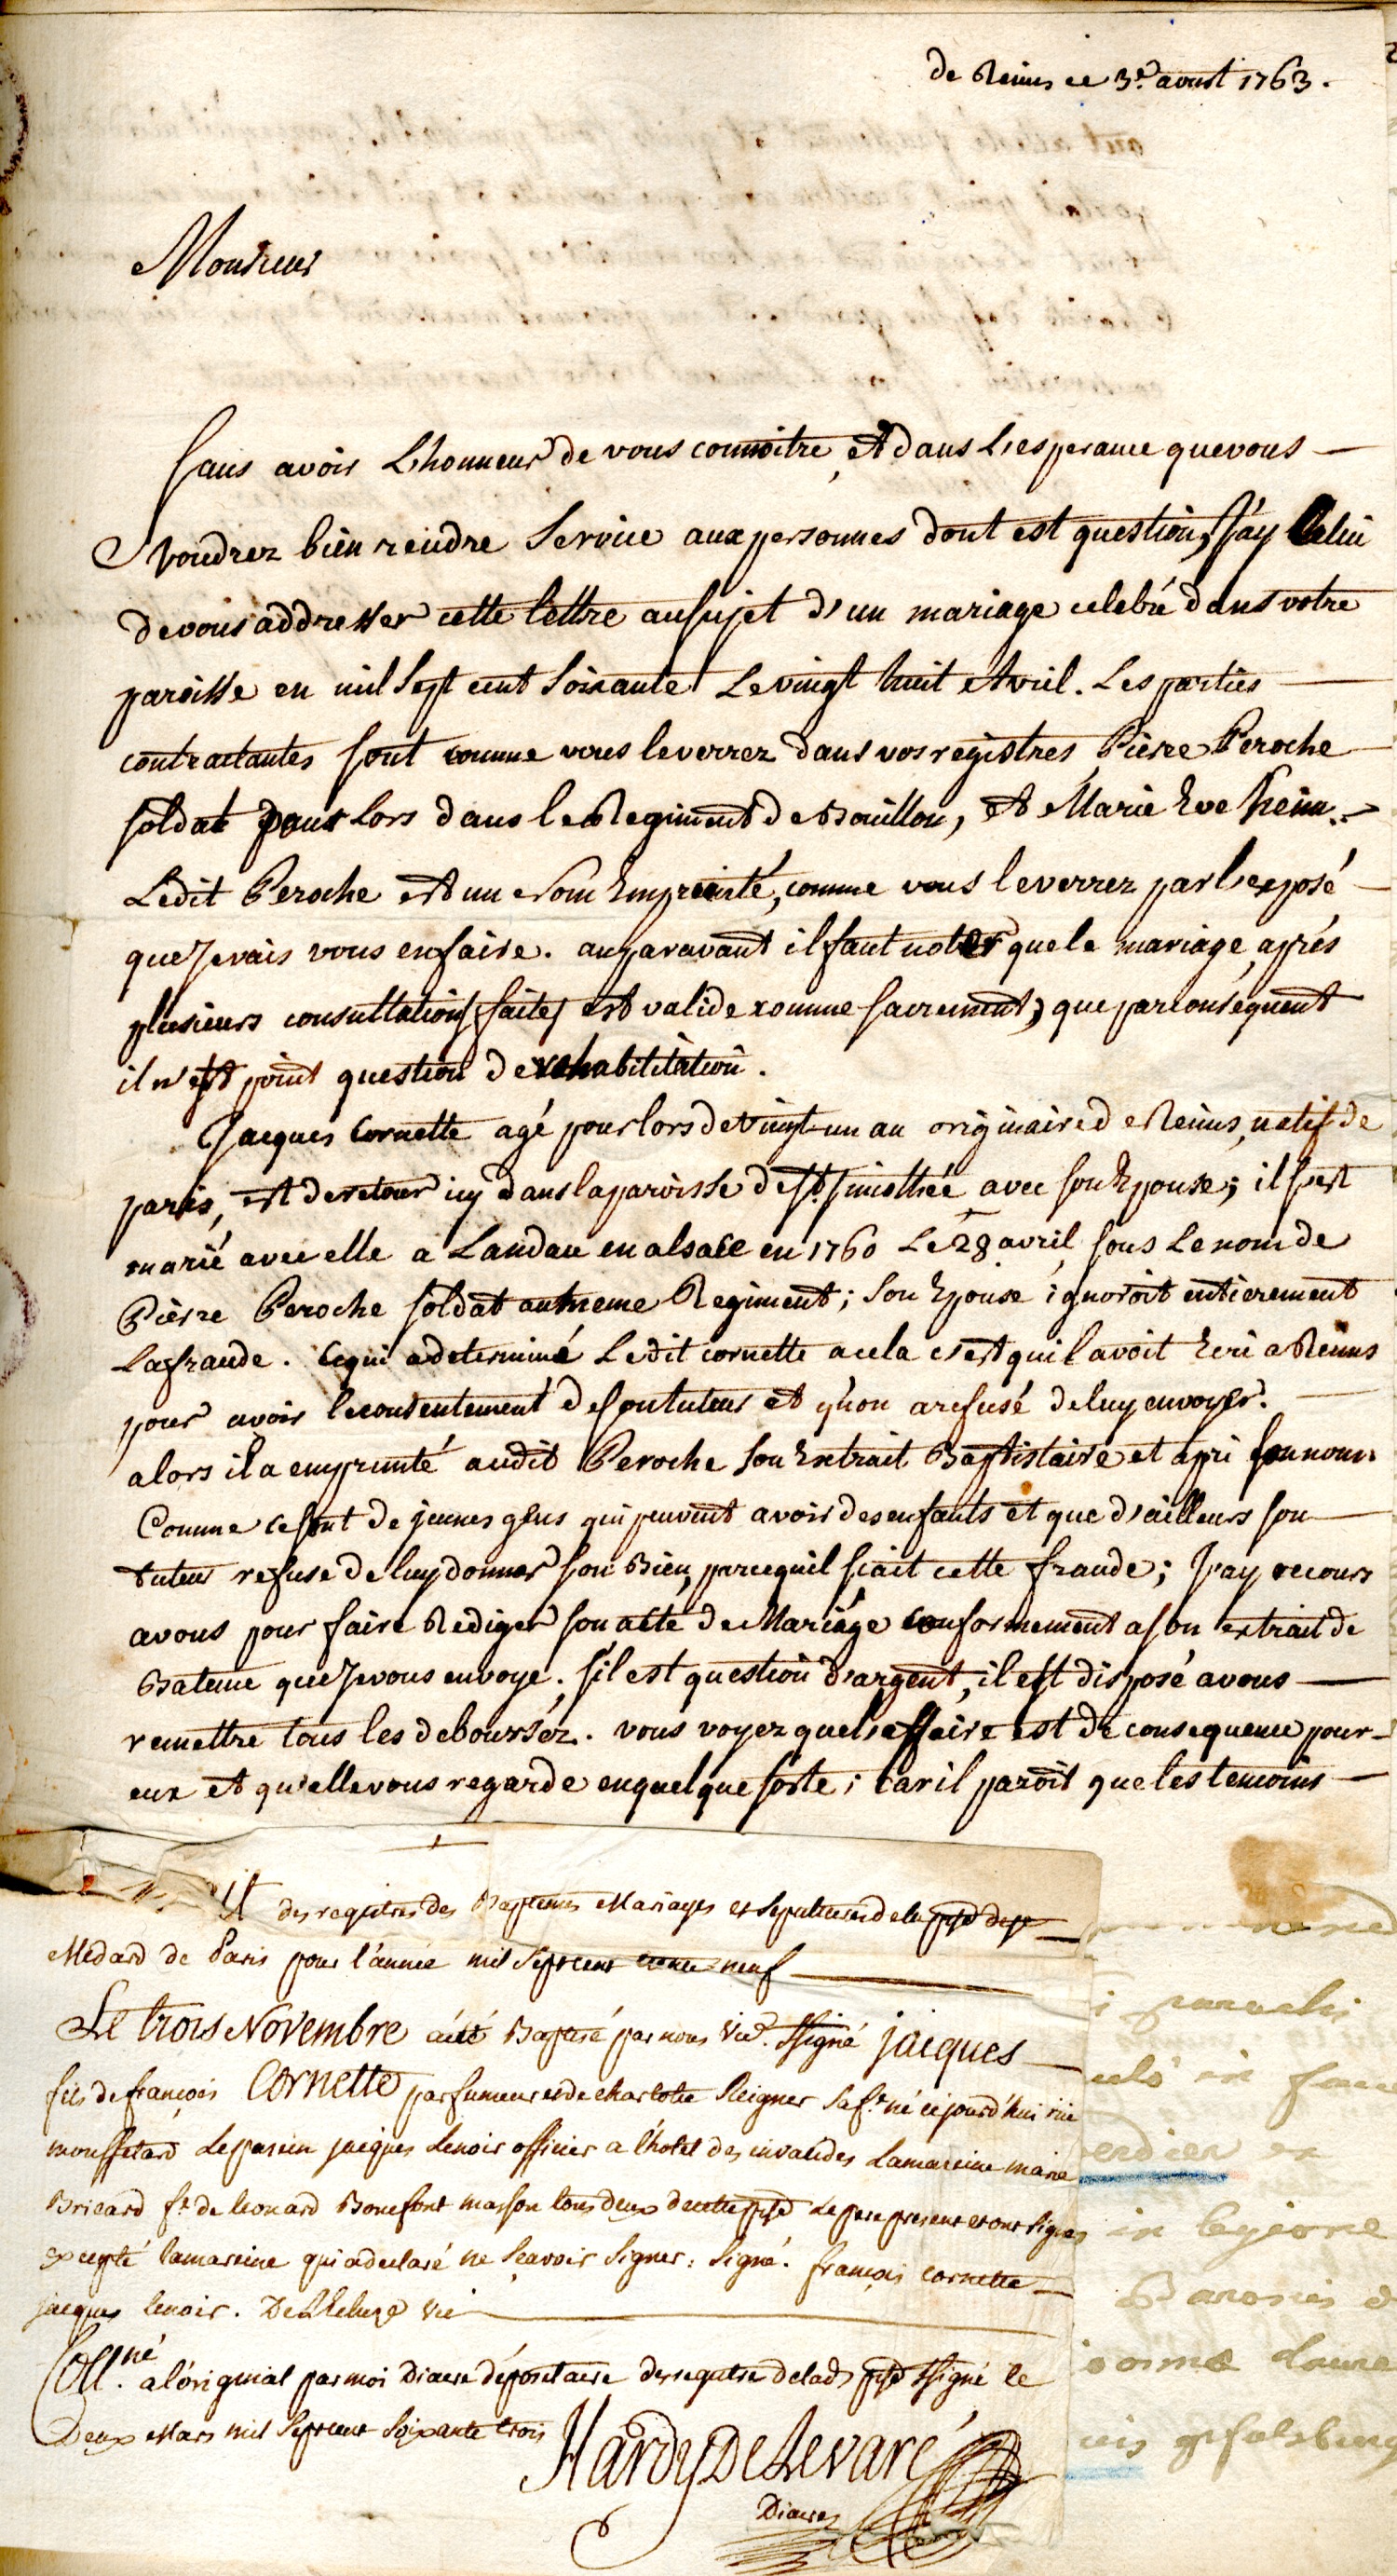 de Reims ce 3e. aoust 1763.
Monsieur
sans avoir L'honneur de vous connoitre, et dans L'esperance que vous
voudrez bien rendre service aux personnes dont est question, J'ay
de vous addresser cette lettre au sujet d'un mariage celebré dans votre
paroisse en mil sept cent soixante Le vingt huit Avril. Les parties
contractantes sont comme vous le verrez dans vos registres, Pierre Peroche
soldat pour lors dans le Regiment de Bouillon, et Marie Eve heim.
Ledit Peroche est un nom Emprunté, comme vous le verrez par l'exposé
que Je vais vous en faire. auparavant il faut noter que le mariage, aprés
plusieurs consultations faites est valide comme sacrement, que par consequent
il n'est point question de rehabilitation.
Jacques Cornette agé pour lors de vingt-un an originaire de Reims, natif de
paris, est de retour icy dans la paroisse de st. timothée avec son Epouse; il s'est
marié avec elle a Landau en alsace en 1760 Le 28 avril, sous Le nom de
Pierre Peroche soldat au meme Regiment; son Epouse ignoroit entierement
La fraude. Ce qui a determiné Ledit cornette a cela c'est qu'il avoit Ecri a Reims
pour avoir le consentement de son tuteur et qu'on a refusé de luy envoyer.
alors il a emprunté audit Peroche son Extrait Baptistaire et a pri son nom.
Comme ce sont de jeunes gens qui peuvent avoir des enfants et que d'ailleurs son
tuteur refuse de luy donner son Bien, parcequ'il sçait cette fraude; J'ay recours
a vous pour faire Rediger son acte de Mariage conformement a son extrait de
Bateme que Je vous envoye. s'il est question d'argent, il est disposé a vous
remettre tous les deboursez. vous voyez que l'affaire est de consequence pour
eux et qu'elle vous regarde en quelque sorte; car il paroit que les temoins
des registres des Baptemes Mariages et Sepultures de la psse de st
Medard de Paris pour l'année mil sept cent trente neuf
Le trois Novembre a été Baptisé par nous Vic. ssigné jacques
fils de françois Cornette parfumeur et de charlotte Seigner sa fe. né cejourd'hui rüe
mouffetard Le parein jacques Lenoir officier a l'hotel des invalides La mareine marie
Bricard fe. de leonard Bonefont masson tous deux de cette psse Le pere present et ont signés
excepté la mareine qui a declaré ne sçavoir signer: Signé. françois cornette
jacques Lenoir. vic
Coll.né a l'original par moi Diacre dépositaire des registre de lad. psse ssigné le
Deux Mars mil sept cent soixante trois
Hardy De Levaré
Diacre
in
in legione